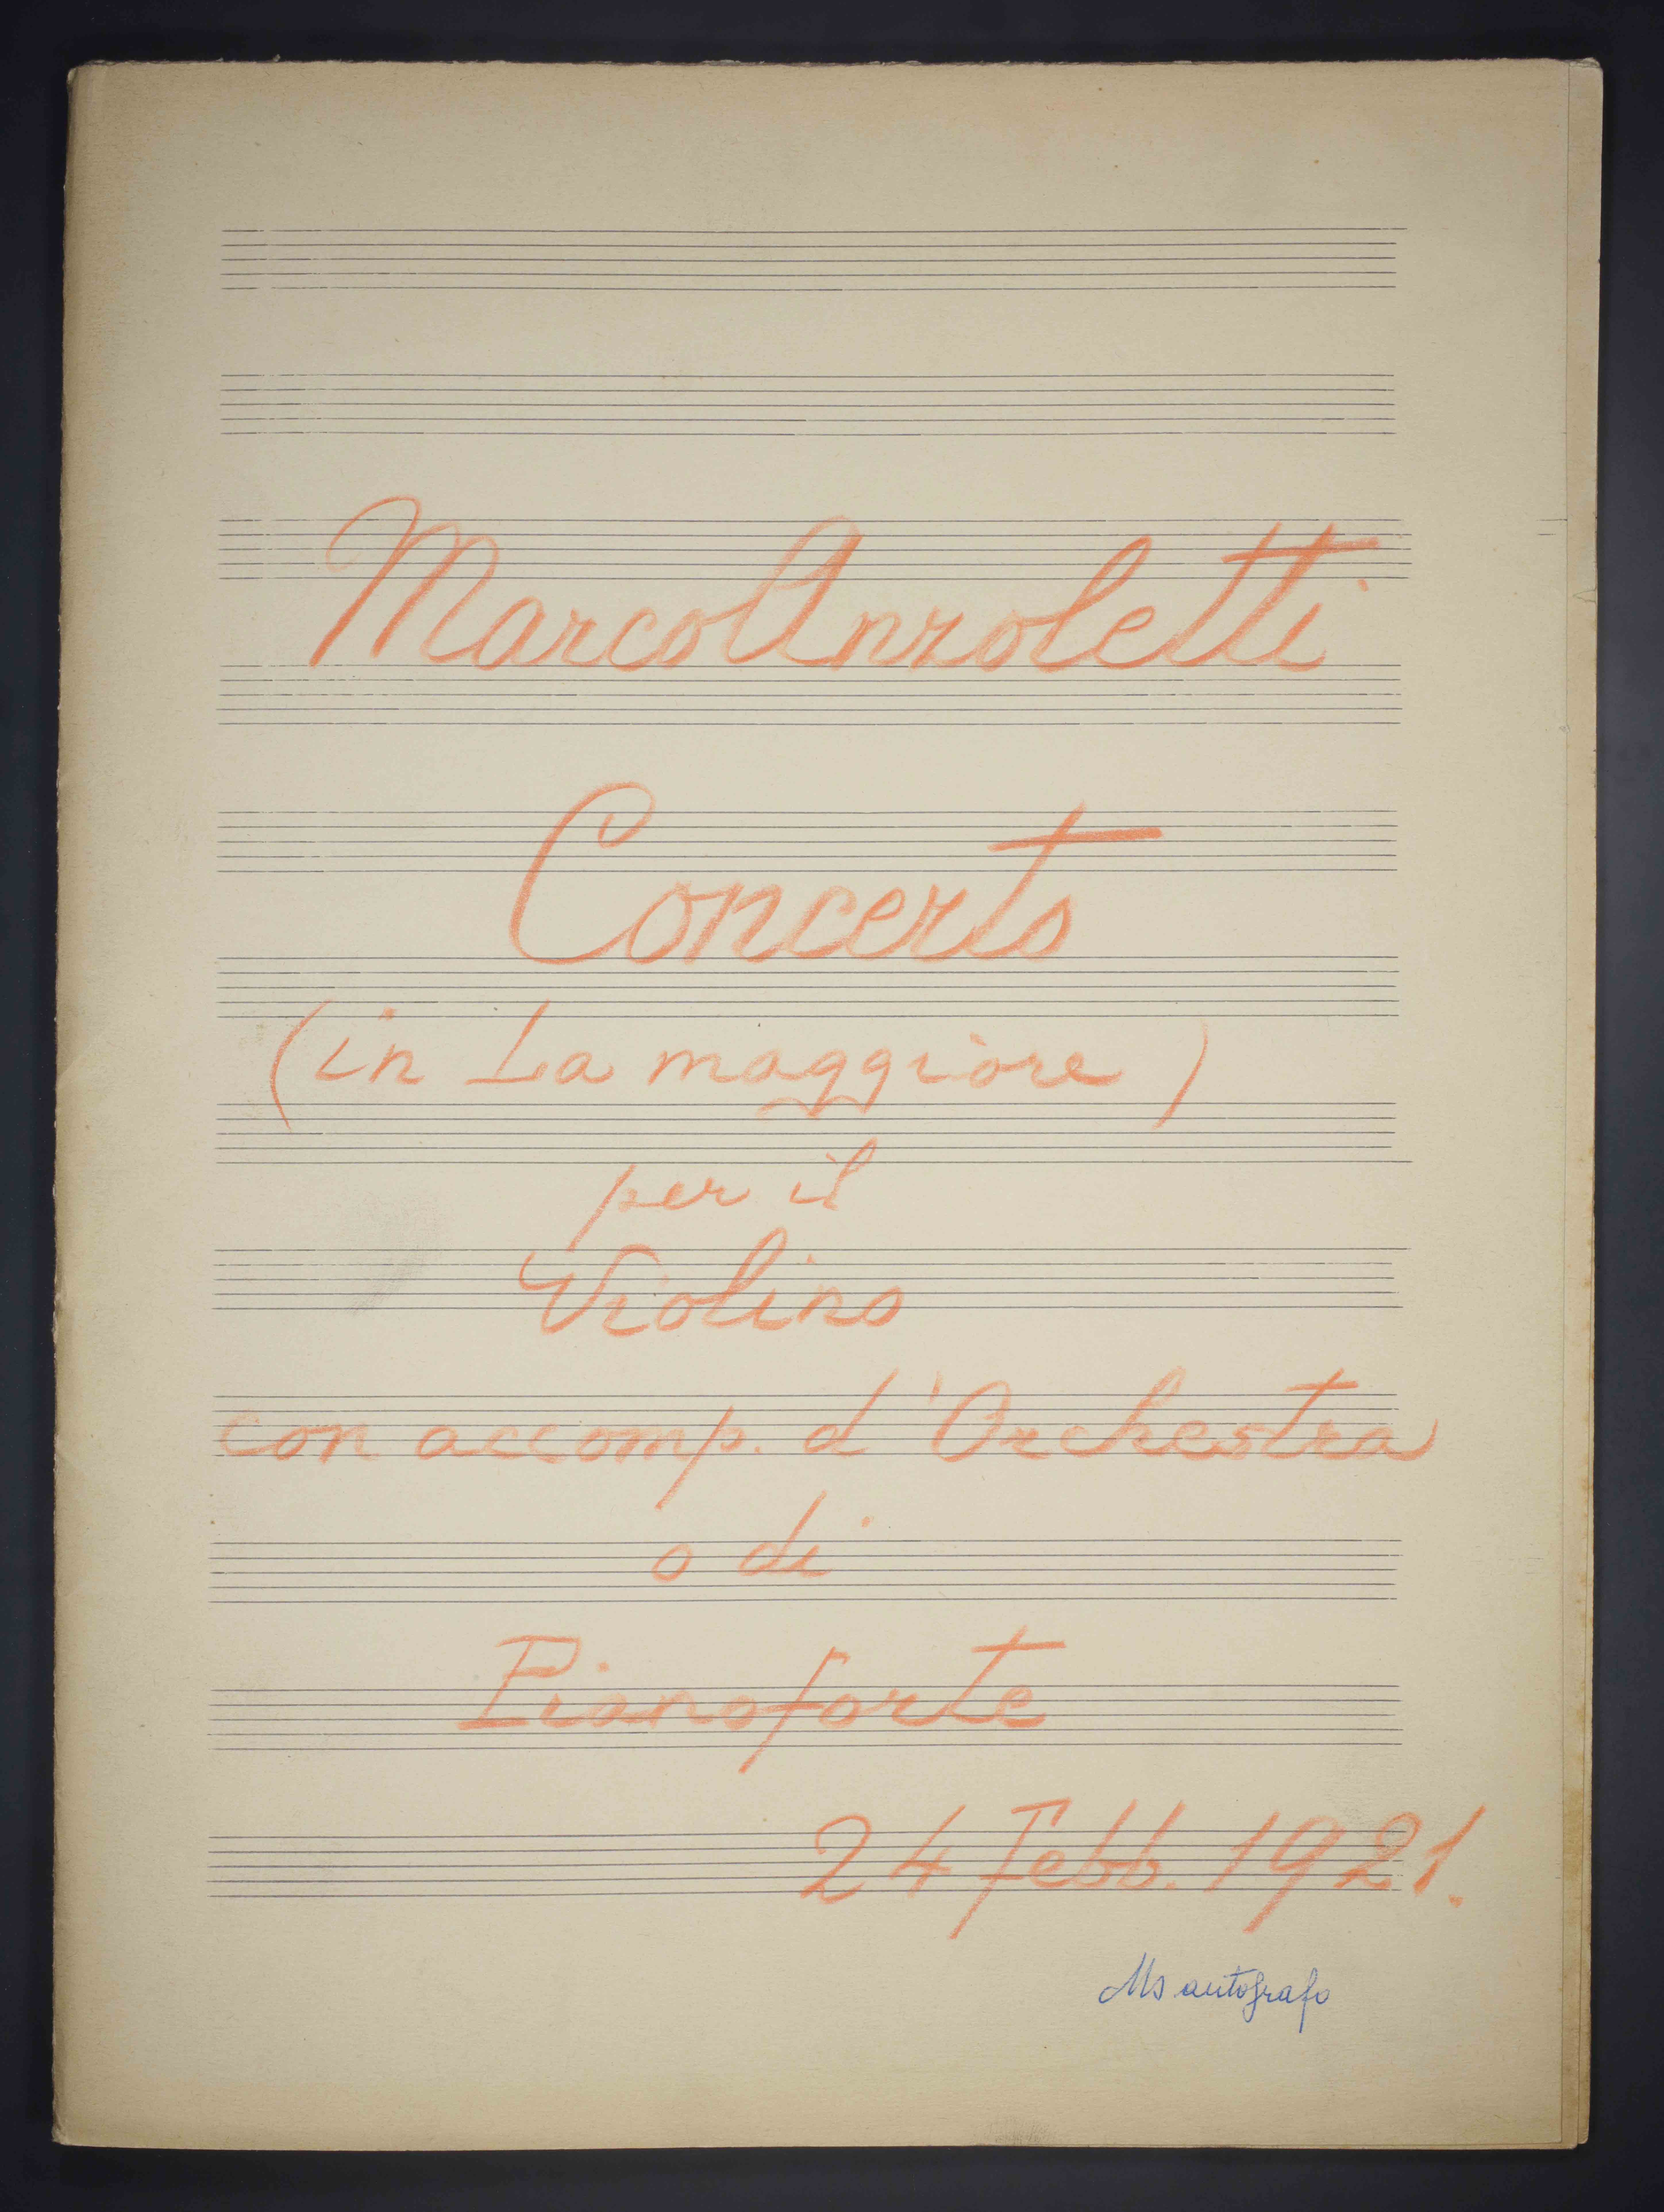 Marco Anzoletti
Concerto
(in La maggiore)
per il
Violino
con accomp. d'Orchestra
o di
Pianoforte
24 Febb. 1921.
Ms autografo